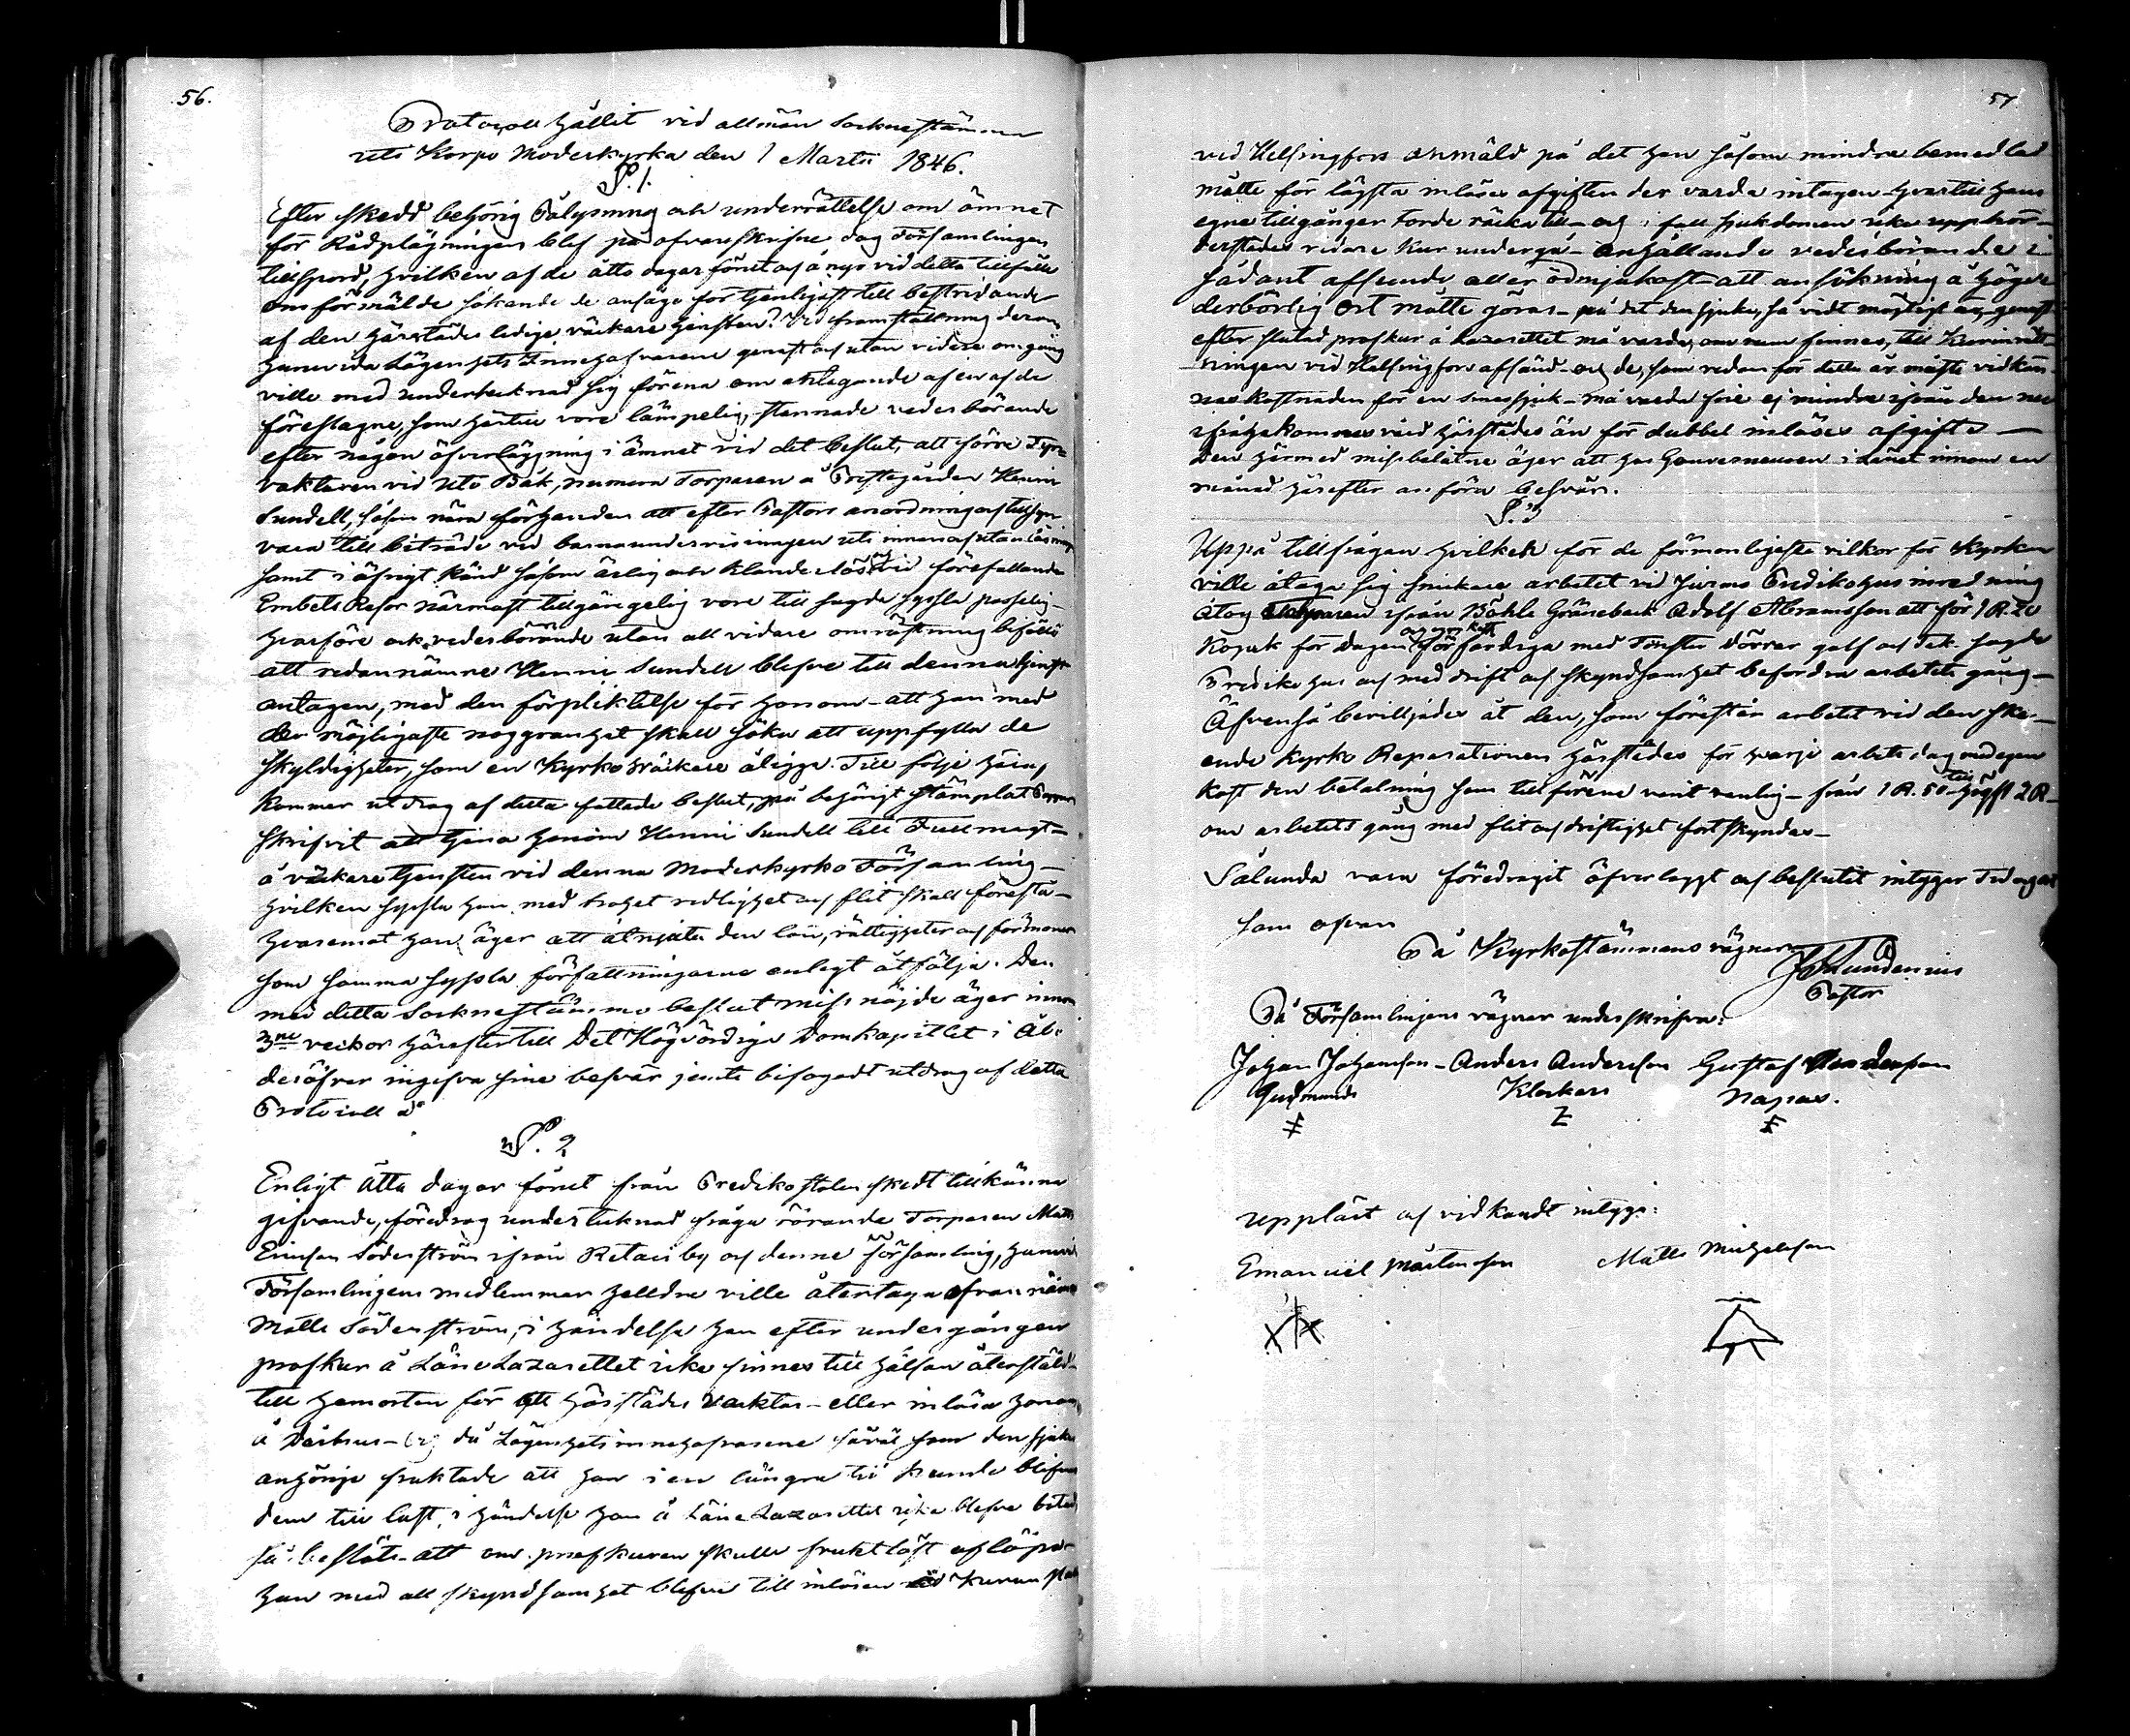 56.
Protocoll hållit vid allmän Socknestämma
uti Korpo Moderkyrka den 1 Martii 1846.
§. 1.
Efter skedd behörig Pålysning och underrättelse om ämnet
för Rådplägningen blef på ofvanskrifne dag Församlingen
tillsporð, hvilken af de åtta dagar förut och å nyo vid detta tillfälle
omförmälde sökande de ansågo för tjenligast till bestridande
af den härstädes lediga väckare tjensten? Vid framställning derom
huruvida Lägenhets Innehafvarene genast och utan vidare omgång
ville med undertecknad sig förena om antagande af en af de
föreslagne, som härtill vore lämpelig, stannade vederbörande
efter någon öfverläggning i ämnet vid det beslut, att förre Fyr-
vaktaren vid Utö Båk, numera Torparen å Prestegården Henric
Sundell, såsom nära förhanden att efter Pastors anordning och tillsyn
vara till biträde vid barnaundervisningen uti innan och utan läsning
samt i öfrigt känd såsom ärlig och klanderlös och vid förefallande
Embets Resor närmast tillgängelig vore till sagda syssla passelig -
hvarföre ock vederbörande utan all vidare omröstning beföllo
att redannämne Henric Sundell blefve till denna tjenst
antagen, med den förpliktelse för honom - att han med
den möjligaste noggranhet skall söka att uppfylla de
skyldigheter, som en Kyrkoväckare åligga. Till följe häraf
kommer utdrag af detta fattade beslut, på behörigt stämplat Papper
skrifvit att tjena honom Henric Sundell till Fullmagt -
å väckare tjensten vid denna Moderkyrko Församling -
hvilken syssla han med trohet redlighet och flit skall förestå -
hvaremot han äger att åtnjuta den lön, rättigheter och förmoner
som samma syssla författningarne enlegt åtfölja. Den
med detta Sockenstämmo beslut missnöjde äger innom
3ne veckor härefter till Det Högvördige Domkapitlet i Åbo
deröfver ingifva sine besvär jemte bifogadt utdrag af detta
Protocoll
§. 2
Enligt åtta dagar förut från Predikostolen skedt tillkänna
gifvande, föredrog undertecknad fråga rörande Torparen Matts
Ericson Söderström ifrån Retais by och denne församling, huruvida
Församlingens medlemmar helldre ville återtaga ofvannämnde
Matts Söderström, i händelse han efter undergången
profkur å Läne Lazarettet icke finnes till hälsan återstäld -
till hemorten för att härstädes vacktas - eller inlösa honom
å Dårhus - då Lägenhetsinnehafvarene såväl som den sjukes
anhörige fruktade att han i en längre tid kunde blifva
dem till last, i händelse han å Läne Lazarettet icke blefve botad,
så beslöts - att om profkuren skulle fruktlöst aflöpa -
han med all skyndsamhet blefve till inlösen vid Kuran stalten
57.
vid Helsingfors anmäld på det han såsom mindre bemedlad
måtte för lägsta inlösen afgiften der varda intagen - hvartill hans
egne tillgånger torde räcka till - och i fall sjukdomen icke upphör -
derstädes vidare kur undergå - Anhållande vederbörande i
sådant afseende aller ödmjukast - att ansökning å högre
derbörlig ort måtte göras - på det den sjuke, så vidt möjligt är, genast
efter slutad profkur å Lazarettet må varda, om rum finnes, till Kurinrätt-
ningen vid Helsingfors afsänd - och de, som redan för detta år måste vidkän-
nas kostnaden för en sinnessjuk - må varda frie ej mindre ifrån den nu
ifrågakomne vård härstädes än för dubbel inlösen afgift -
Den härmed missbelåtne äger att hos Gouverneuren i Länet innom en
månad härefter anföra besvär.
§. 3
Uppå tillfrågan hvilken för de förmonligaste vilkor för Kyrkan
ville åtaga sig snickare arbetet vid Jurmo Predikohus inredning
åtog Torparen ifrån Böhle Gränsback Adolf Abramsson att för 1 R. 20
Kopek för dagen och egen kost förfärdiga med Fönster Dörrar golf och Tak sagde
Prediko hus och med drift och skyndsamhet befordra arbetets gång -
Äfvenså beviljades åt den, som förestår arbetet vid den ske-
ende Kyrko Reparationen härstädes för hvarje arbets dag med egen
kost den betalning som tillförene varit vanlig - från 1 R. 50 till högst 2 R -
om arbetets gång med flit och driftighet fortskyndas -
Sålunda vara föredragit öfverlagt och beslutit intygar Tid och ort
som ofvan
På Kyrkostämmans vägnar
Joh Lundenius
Pastor
På Församlingens vägnar underskrifva:
Johan Johansson - Anders Andersson Gustaf Andersson
Gudmunds Klockars Nopas.
Uppläst och vidkändt intyga:
Emanuel Mårtensson Matts Michelsson